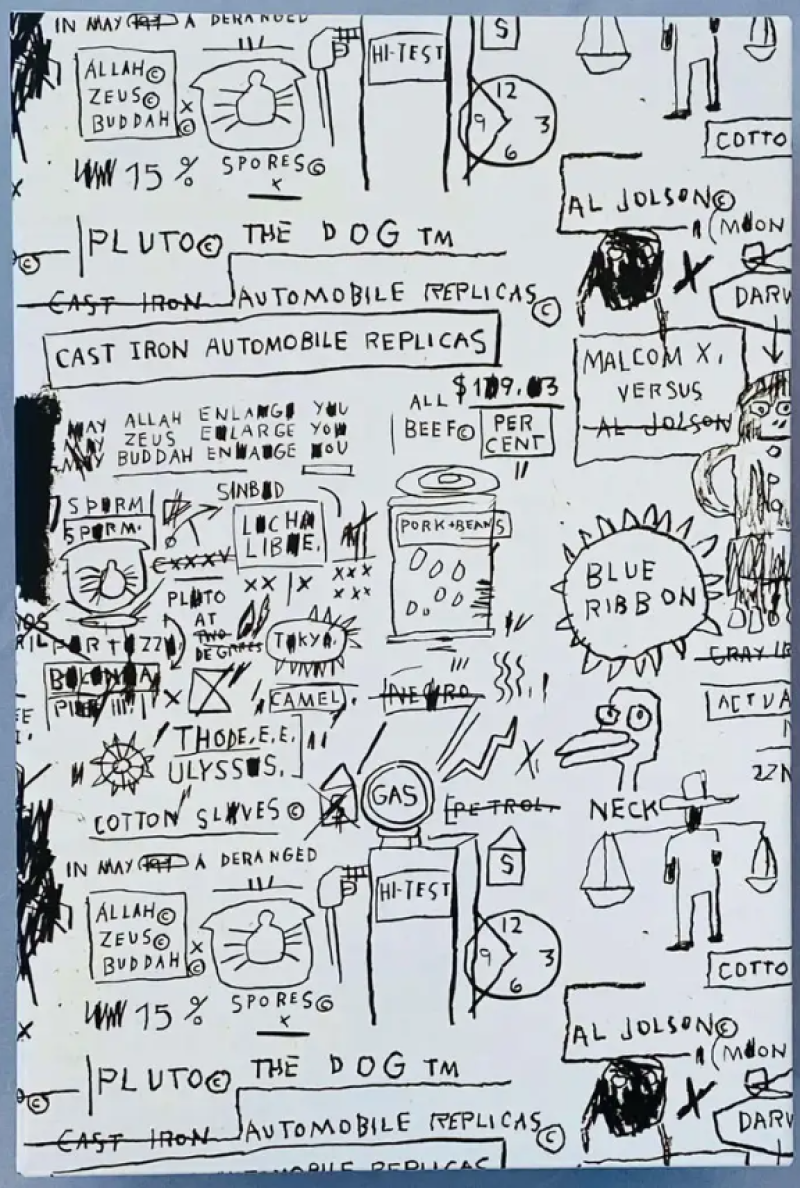 IN MAY A DERANGED
ALLAH©
ZEUS©
BUDDAH ©
X
15 %
SPORES©
X
HI-TEST
S
12
9 3
6
COTTO
AL JOLSON©
(MOON
X
DARW
PLUTO© THE DOG TM
©
CAST IRON AUTOMOBILE REPLICAS ©
CAST IRON AUTOMOBILE REPLICAS
MALCOM X.
VERSUS
AL JOLSON
ALL $119.03
BEEF© PER
CENT
MAY ALLAH ENLARGE YOU
MAY ZEUS ENLARGE YOU
MAY BUDDAH ENLARGE YOU
SPERM
SPERM.
SINBAD
LUCHA
LIBRE.
CXXXV
XX | X
XXX
XXX
PORK+BEANS
BLUE
RIBBON
PLUTO
AT
TWO
DEGREES
TOKYO.
BOLONIA
X
CAMEL.
NEGRO
GRAY
ACTUA
THODE, E.E.
ULYSSES.
X
COTTON SLAVES ©
GAS
PETROL.
NECK
IN MAY A DERANGED
ALLAH©
ZEUS©
BUDDAH ©
X
15 %
SPORES©
X
HI-TEST
S
12
9 3
6
COTTO
AL JOLSON©
(MOON
X
DARW
PLUTO© THE DOG TM
©
CAST IRON AUTOMOBILE REPLICAS ©
AUTOMOBILE REPLICAS